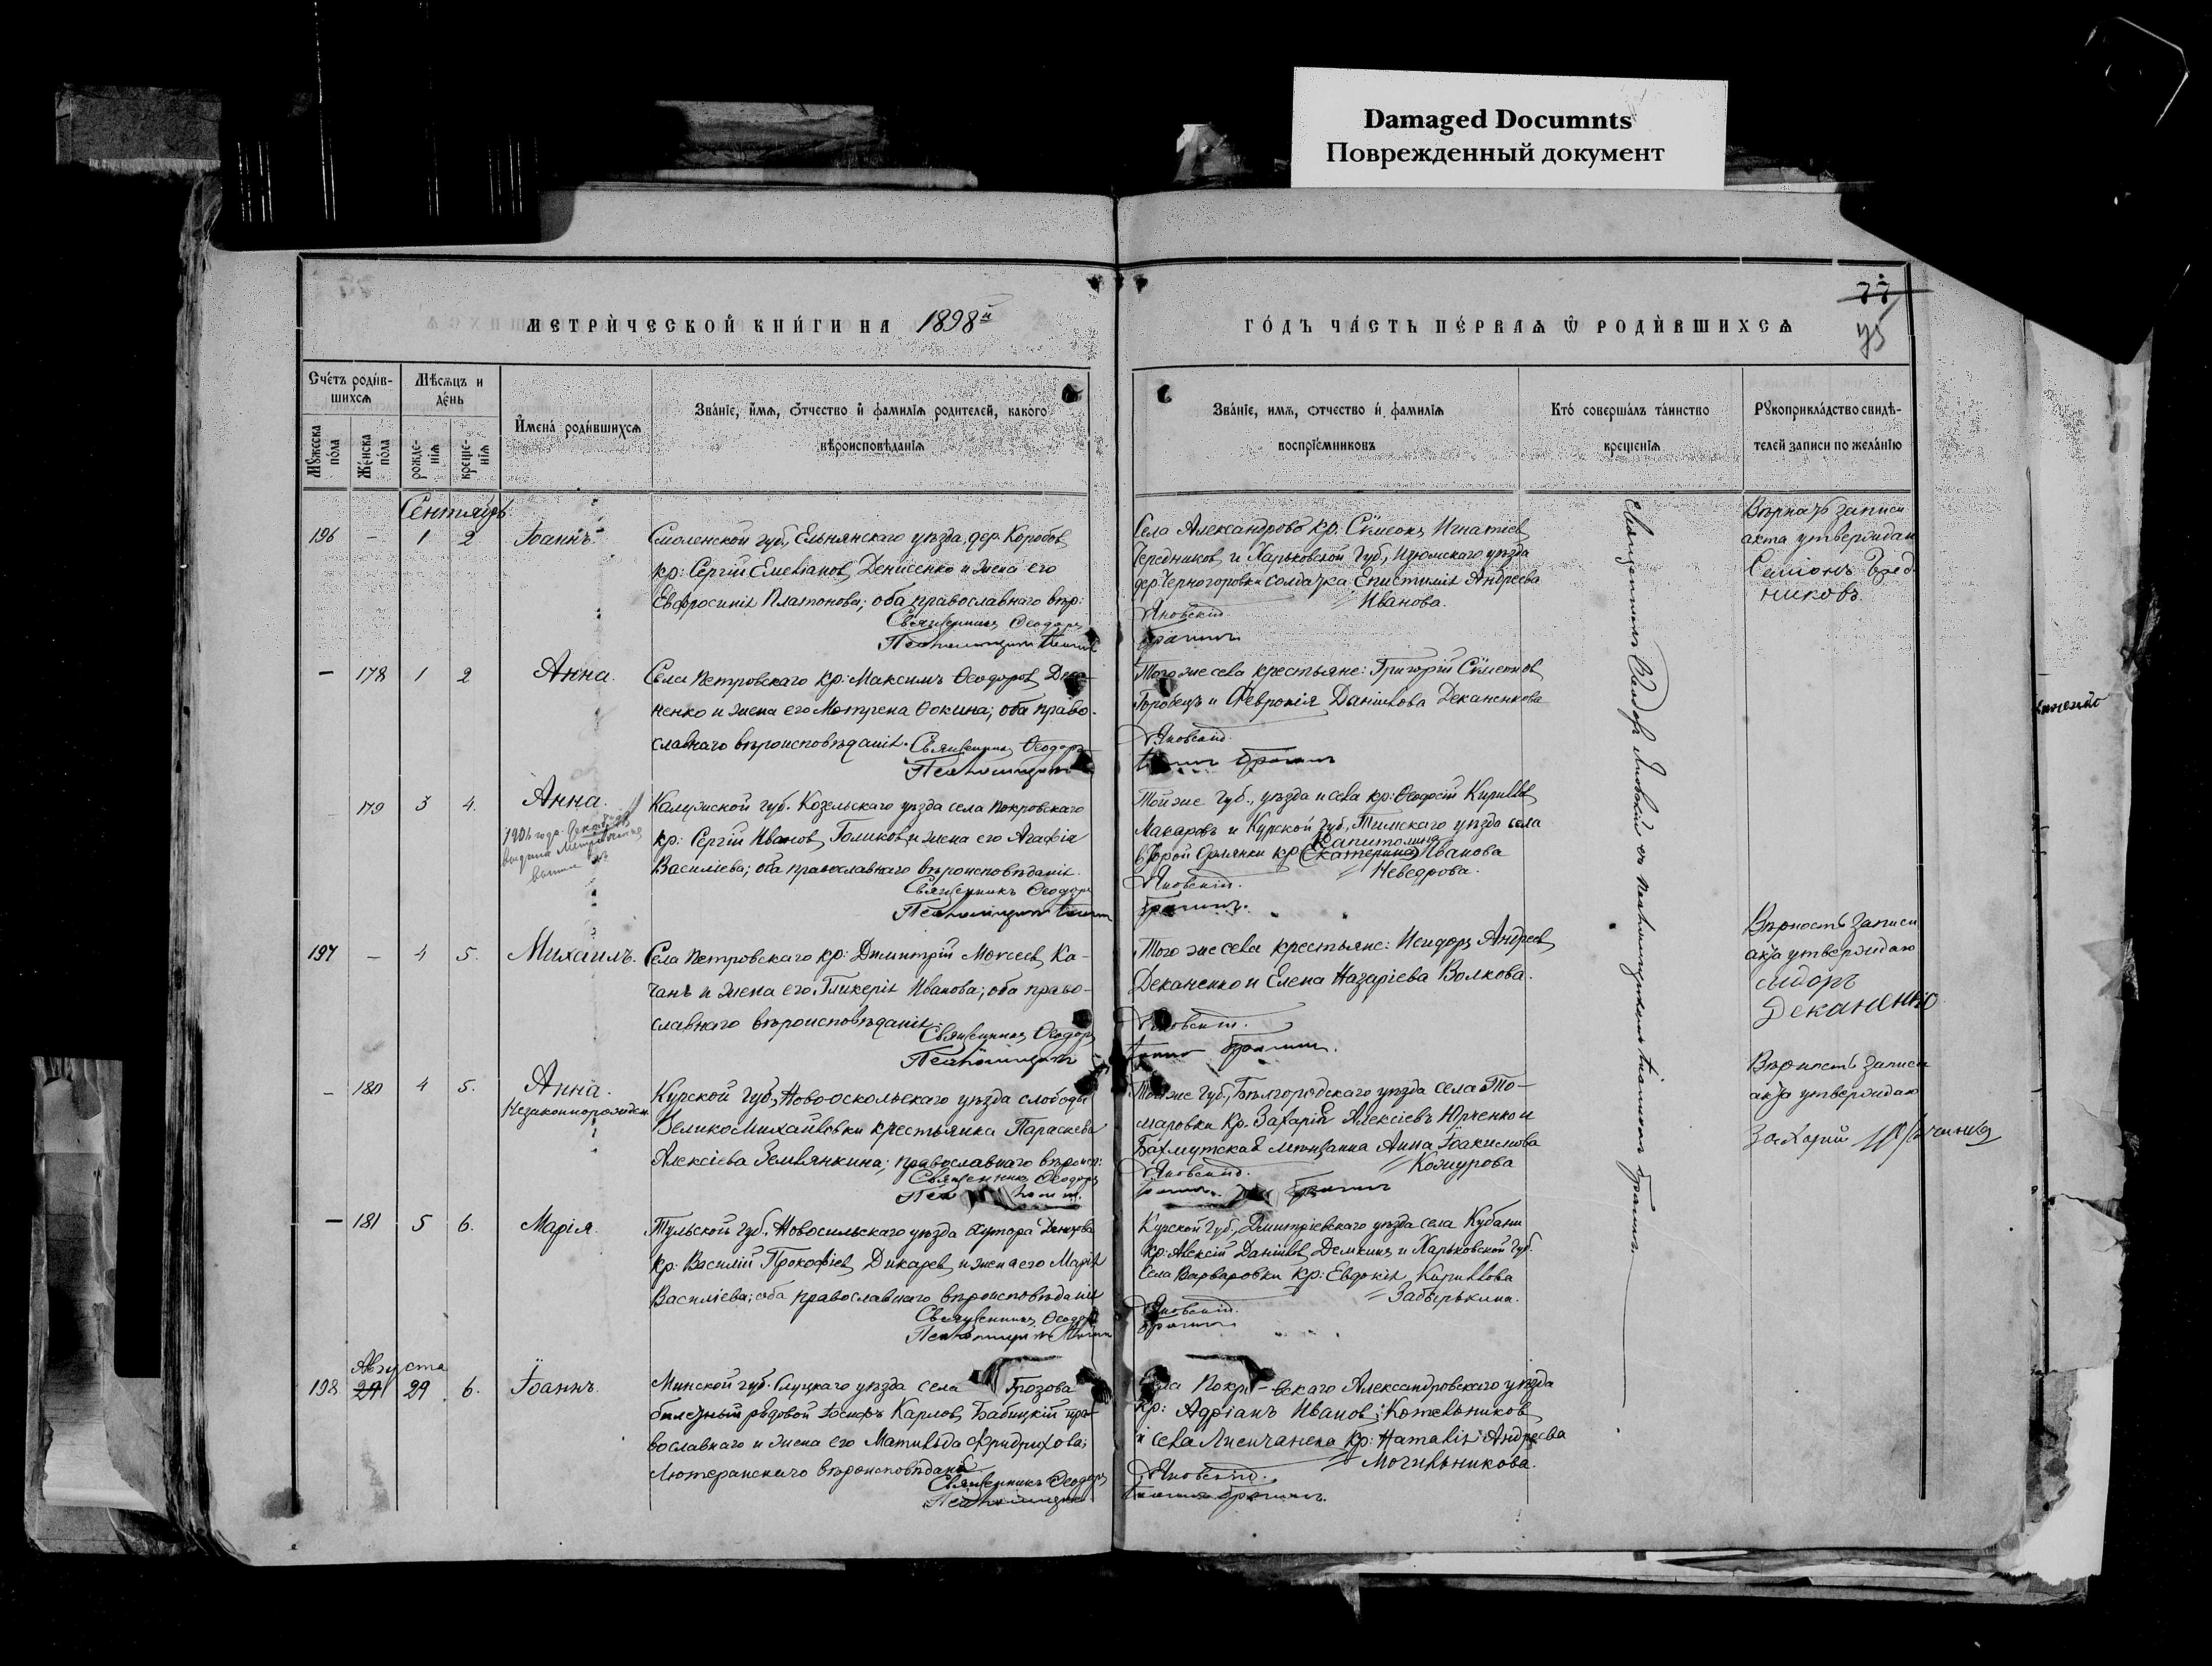 Damaged Documnts
Поврежденный документ
77
75
МЕТРИ́ЧЕСКОЙ КНИ́ГИ НА 1898й
ГО́ДЪ ЧА́СТЬ ПЕ́РВАѦ Ѽ РОДИ́ВШИХСѦ
Счетъ роди́в-
шихсѧ
Мѣсѧцъ и
де́нь
Мꙋжеска по́ла
Же́нска по́ла
рожде-
нїѧ
креще-
нїѧ
И́мена̀ роди́вшихсѧ
Зва́нїе, и́мѧ, ѻ́тчество и҆ фамилїѧ родителей, како́го
вѣроисповѣданїѧ
Зва́нїе, имѧ, ѻтчество и҆ фамилїѧ
воспрїе́мниковъ
Кто̀ соверша́лъ та́инство
крещенїѧ
Рꙋкоприкла́дство свидѣ-
телей записи по жела́нїю
Сентябрь
196 — 1 2 Іоаннъ.
Смоленской губ., Ельнянскаго уѣзда, дер. Коробов
кр: Сергій Емеліанов Денисенко и жена его
Евфросинія Платонова; оба православнаго вѣр:
Священникъ Ѳеодоръ
Села Александрово кр. Сѷмеонъ Игнатіев
Чередников и Харьковской Губ., Изюмскаго уѣзда
дер. Черногоровки солдатка Епистимія Андреева
Иванова.
Яновскій
Вѣрность записи
акта утверждаю
— 178 1 2 Анна.
Села Петровскаго кр: Максимъ Ѳеодоров Дека-
ненко и жена его Мотрена Фокина; оба право-
славнаго вѣроисповѣданія. Священникъ Ѳеодоръ
Того же села крестьяне: Григорій Сѷмеонов
Горобецъ и Февронія Даніилова Деканенкова
Яновскій.
179 3 4. Анна.
1906 года
Калужской губ. Козельскаго уѣзда села Покровскаго
кр: Сергій Иванов Голиков и жена его Агафія
Василіева; оба православнаго вѣроисповѣданія.
Священникъ Ѳеодоръ
Той же Губ., уѣзда и села кр: Ѳеодосій Кириллов
Макаровъ и Курской Губ., Тимскаго уѣзда села
Капитолина
кр: (Екатерина) Иванова
Неведрова.
Яновскій.
197 — 4 5. Михаилъ.
Села Петровскаго кр: Димитрій Моисеев Ка-
чанъ и жена его Гликерія Иванова; оба право-
славнаго вѣроисповѣданія.
Священникъ Ѳеодоръ
Того же села крестьяне: Исидоръ Андреев
Деканенко и Елена Назаріева Волкова.
Яновскій.
Вѣрность записи
акта утверждаю
Сидоръ
Деканенко
— 180 4 5. Анна.
Незаконнорожден.
Курской Губ., Новооскольскаго уѣзда слободы
ВеликоМихайловки крестьянка Параскева
Алексіева Землянкина; православнаго вѣроисп:
Священникъ Ѳеодоръ
Той же Губ., Бѣлгородскаго уѣзда села То-
маровки Кр. Захарій Алексіевъ Юрченко и
Бахмутская мѣщанка Анна Іоакимова
Кожурова
Яновскій.
Вѣрность записи
акта утверждаю
Захарий Юрченко
— 181 5 6. Марія.
Тульской Губ., Новосильскаго уѣзда хутора
кр: Василій Прокофіев Дикарев и жена его Марія
Василіева; оба православнаго вѣроисповѣданія
Священникъ Ѳеодоръ
Курской Губ., Дмитріевскаго уѣзда села Кубани
кр: Алексій Даніилов Демкинъ и Харьковской Губ.
Села Варваровки кр: Евдокія Кириллова
Забырькина.
Яновскій.
Августа
198 29 6. Іоаннъ.
Минской губ. Слуцкаго уѣзда села Грозова
билетный рядовой Іосифъ Карлов Бабицкій пра-
вославнаго и жена его Матильда Фридрихова;
Лютеранскаго вѣроисповѣданія
Священникъ Ѳеодоръ
Села Покровскаго Александровскаго уѣзда
кр: Адріанъ Иванов Котельников
и села Лисичанска кр: Наталія Андреева
Могильникова.
Яновскій.